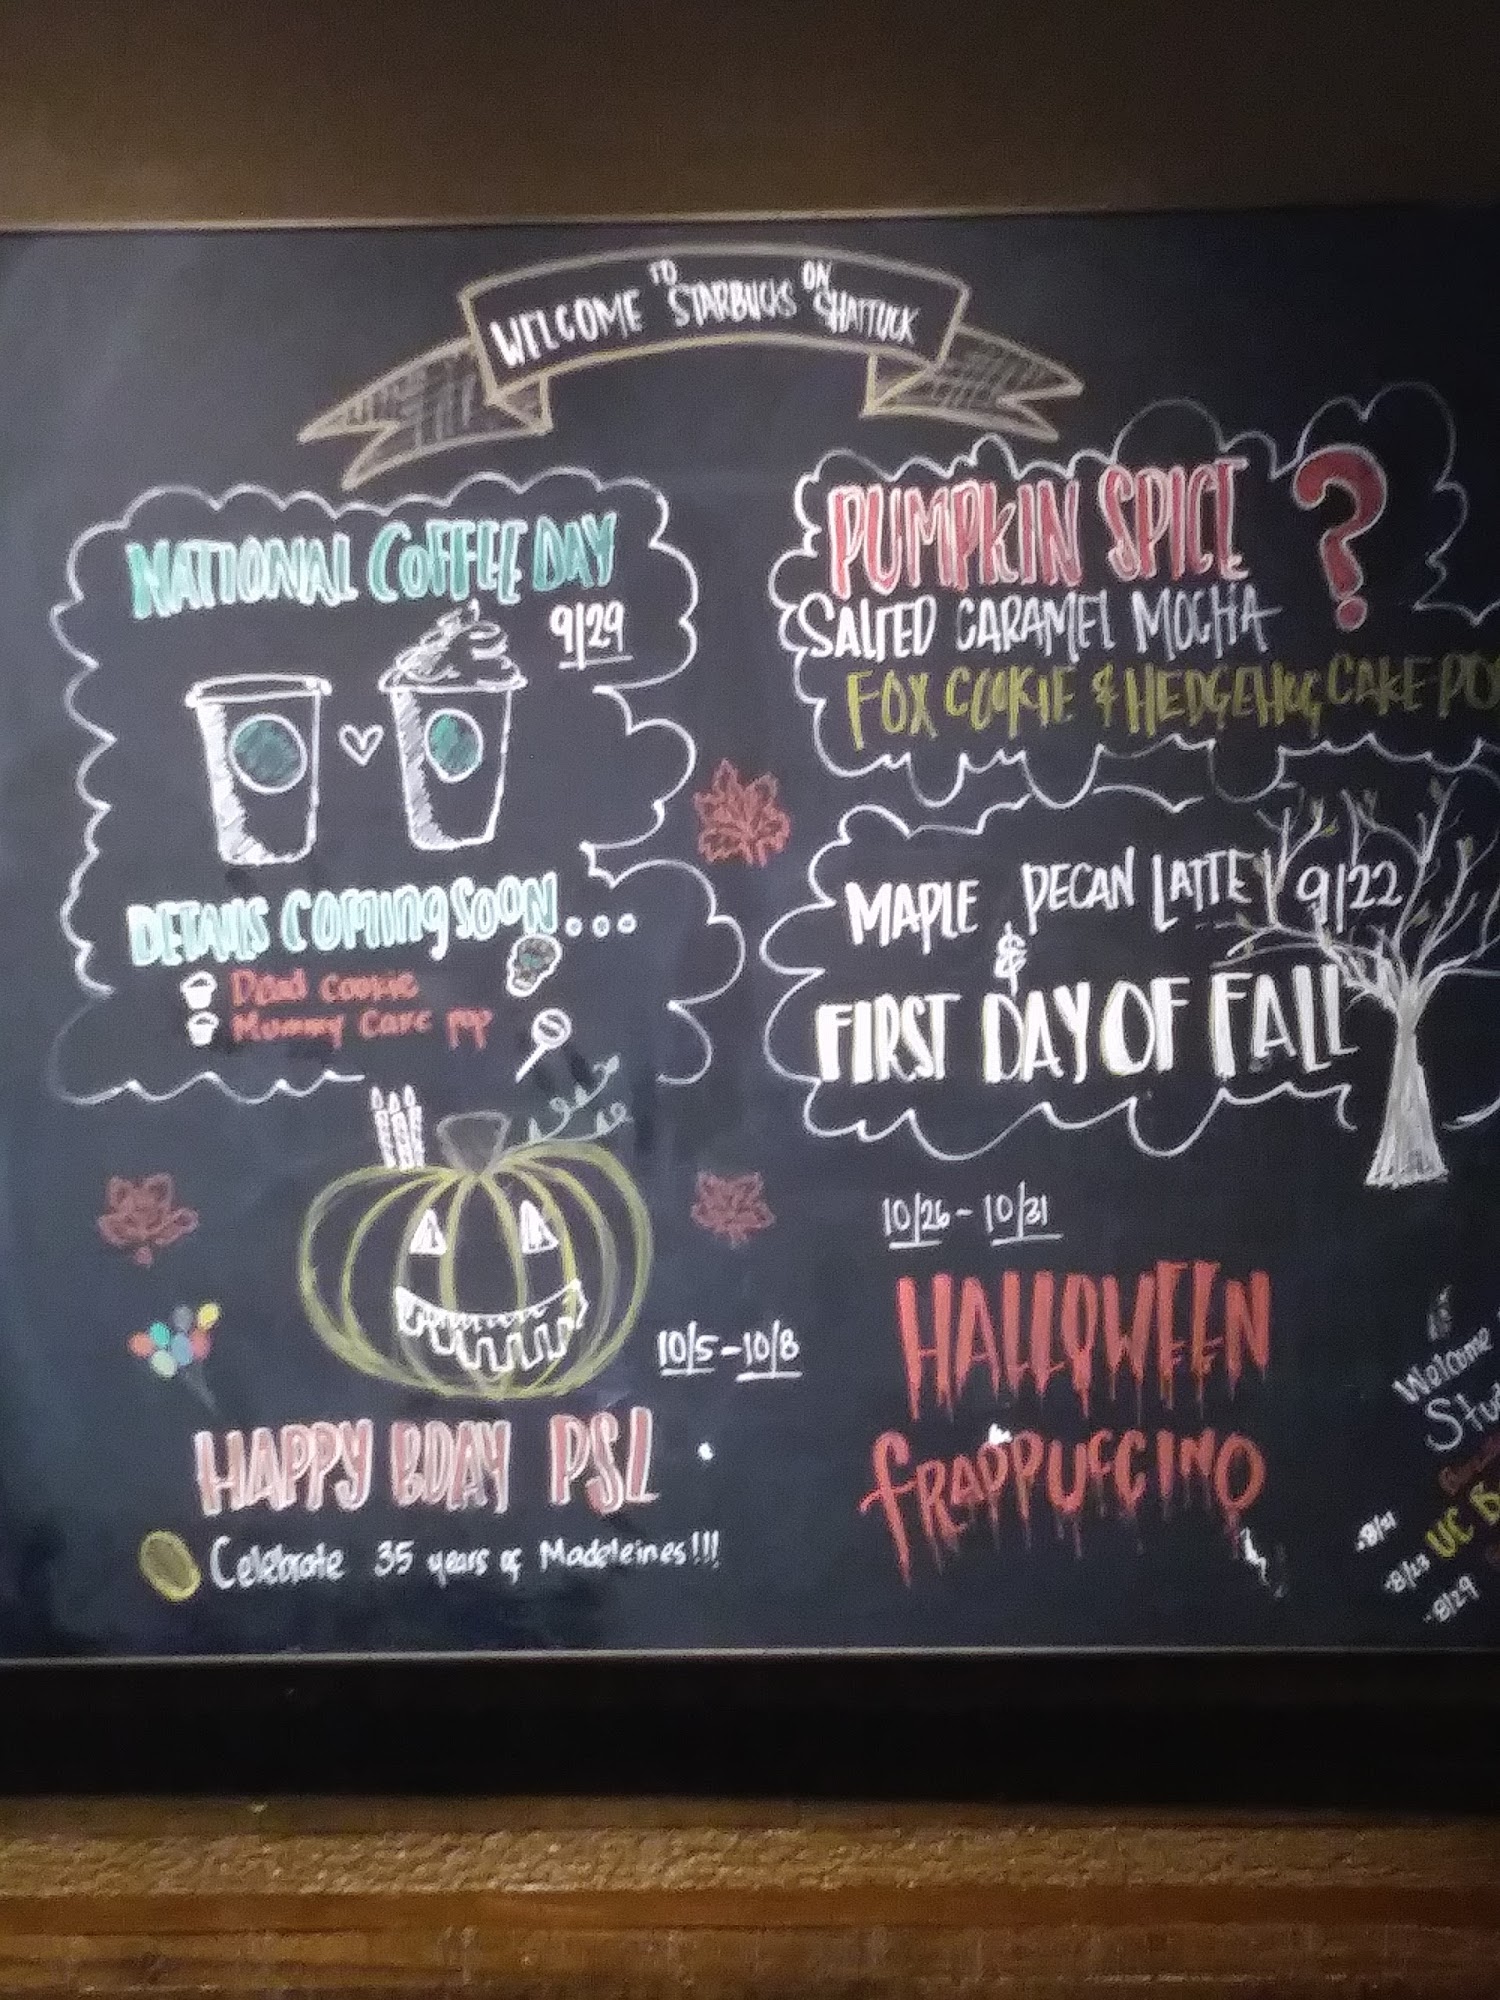 WELCOME TO STARBUCKS ON SHATTUCK
NATIONAL COFFEE DAY
9/29
DETAILS COMING SOON...
Dead Cookie
Mummy Cake Pop
PUMPKIN SPICE ?
SALTED CARAMEL MOCHA
FOX COOKIE & HEDGEHOG CAKE PO
MAPLE PECAN LATTE 9/22
&
FIRST DAY OF FALL
10/5-10/8
HAPPY BDAY PSL
Celebrate 35 years of Madeleines!!!
10/26-10/31
HALLOWEEN
FRAPPUCCINO
Welcome
Stu
UC B
-8/21
-8/23
-8/29